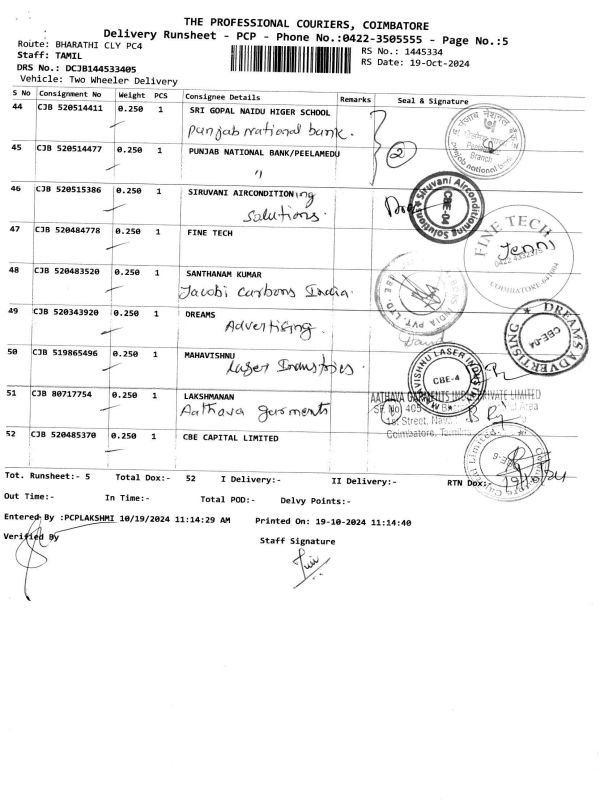 THE PROFESSIONAL COURIERS, COIMBATORE
Delivery Runsheet - PCP - Phone No.:0422-3505555 - Page No.:5
Route: BHARATHI CLY PC4
RS No.: 1445334
Staff: TAMIL
RS Date: 19-Oct-2024
DRS No.: DCJB144533405
Vehicle: Two Wheeler Delivery
S No Consignment No Weight PCS Consignee Details Remarks Seal & Signature
44 CJB 520514411 0.250 1 SRI GOPAL NAIDU HIGER SCHOOL
Punjab national bank.
45 CJB 520514477 0.250 1 PUNJAB NATIONAL BANK/PEELAMEDU
"
2
Branch
punjab national bank
46 CJB 520515386 0.250 1 SIRUVANI AIRCONDITIONing
Solutions.
Siruvani Airconditioning Solutions
CBE-04
47 CJB 520484778 0.250 1 FINE TECH
FINE TECH
Jenni
0422 4332975
COIMBATORE-641004
48 CJB 520483520 0.250 1 SANTHANAM KUMAR
Jacobi Carbons India.
INDIA PVT. LTD
49 CJB 520343920 0.250 1 DREAMS
Advertising.
DREAMS ADVERTISING
CBE-04
50 CJB 519865496 0.250 1 MAHAVISHNU
Laser Industries.
CBE-4
51 CJB 80717754 0.250 1 LAKSHMANAN
Aathava garments
AATHAVA GARMENTS PRIVATE LIMITED
SF No 405
Area
1st Street,
Coimbatore,
52 CJB 520485370 0.250 1 CBE CAPITAL LIMITED
19/10/24
Tot. Runsheet:- 5 Total Dox:- 52 I Delivery:- II Delivery:- RTN Dox:-
Out Time:- In Time:- Total POD:- Delvy Points:-
Entered By :PCPLAKSHMI 10/19/2024 11:14:29 AM Printed On: 19-10-2024 11:14:40
Verified By Staff Signature